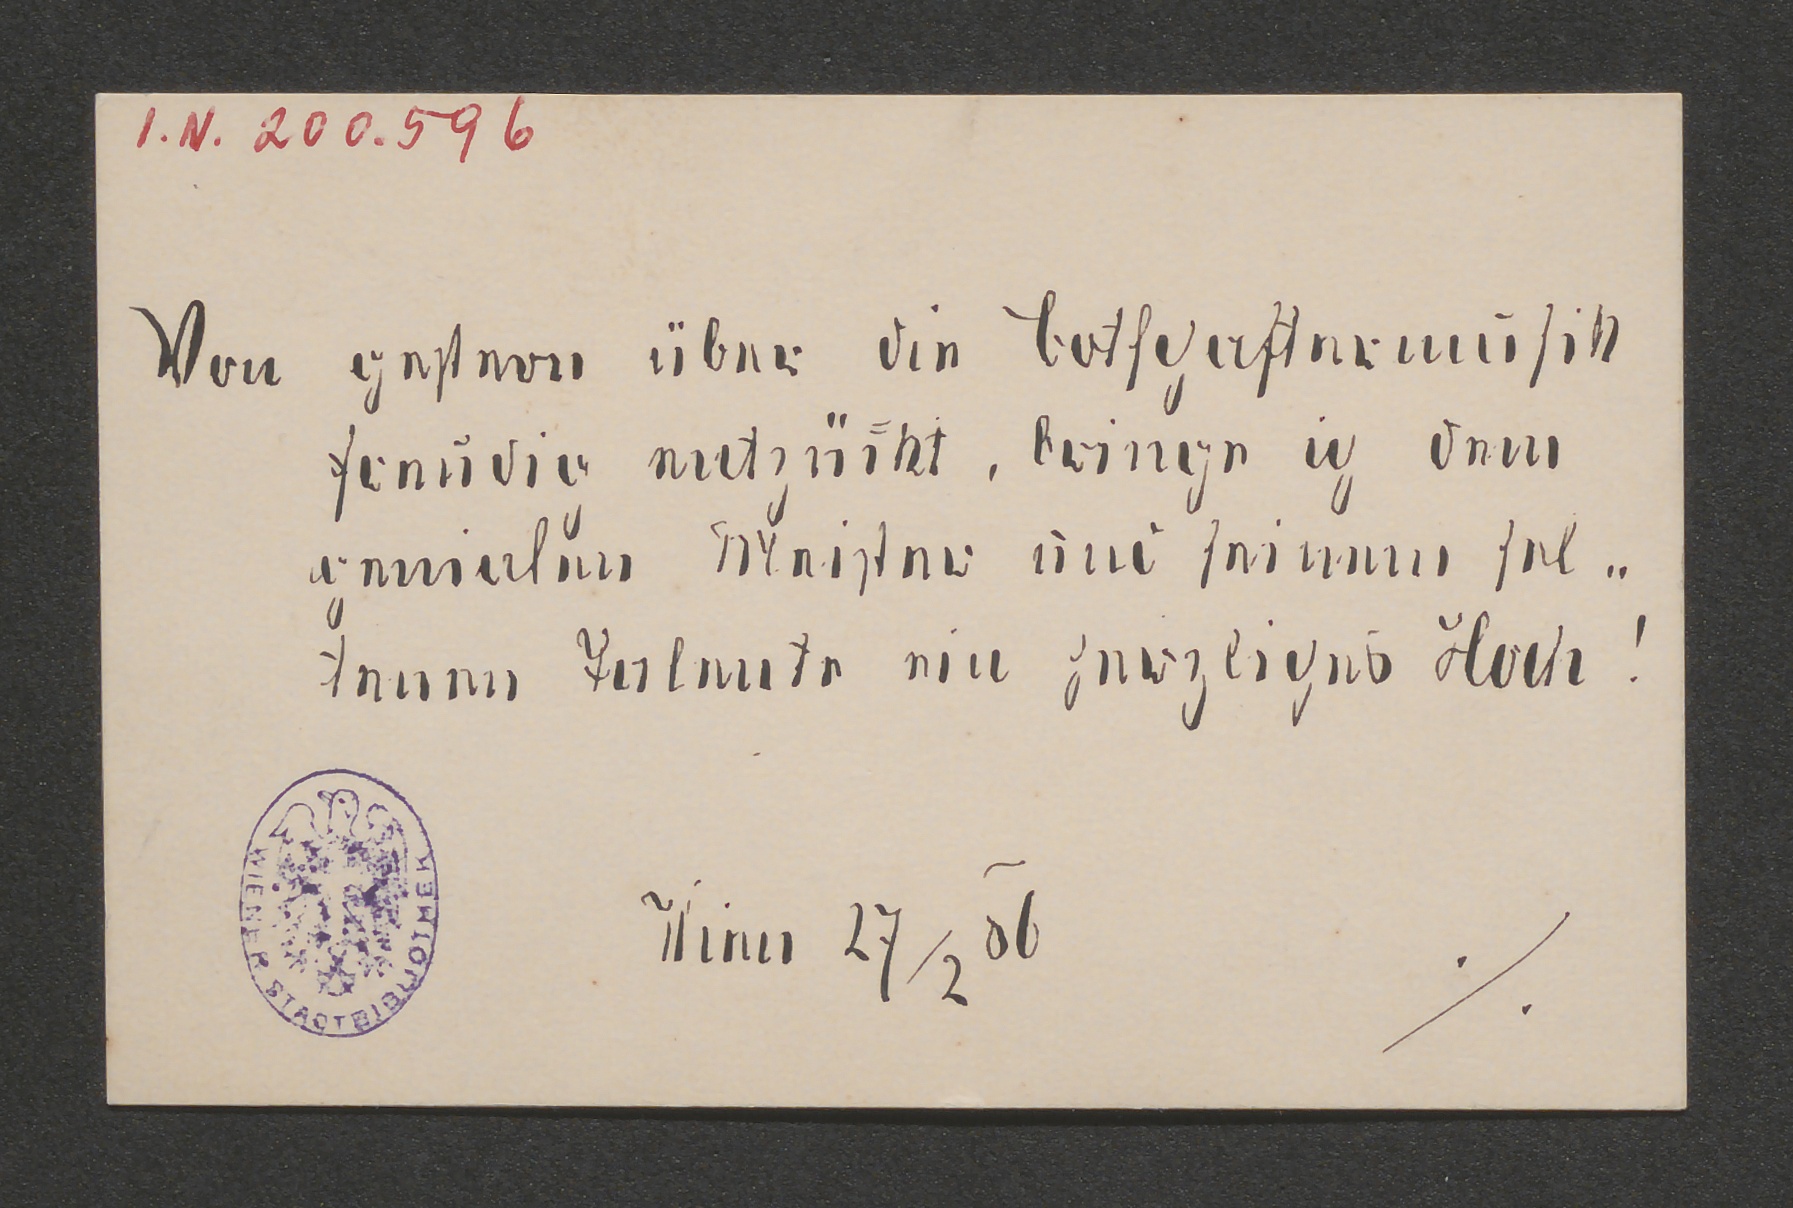 I.N. 200.596
Von gestern über die Botschaftermusik
freudig entzückt, bringe ich dem
genialen Meister und seinem sel„
tenen Talente ein herzliches Hoch!
WIENER STADTBIBLIOTHEK
Wien 27/2 86
./.